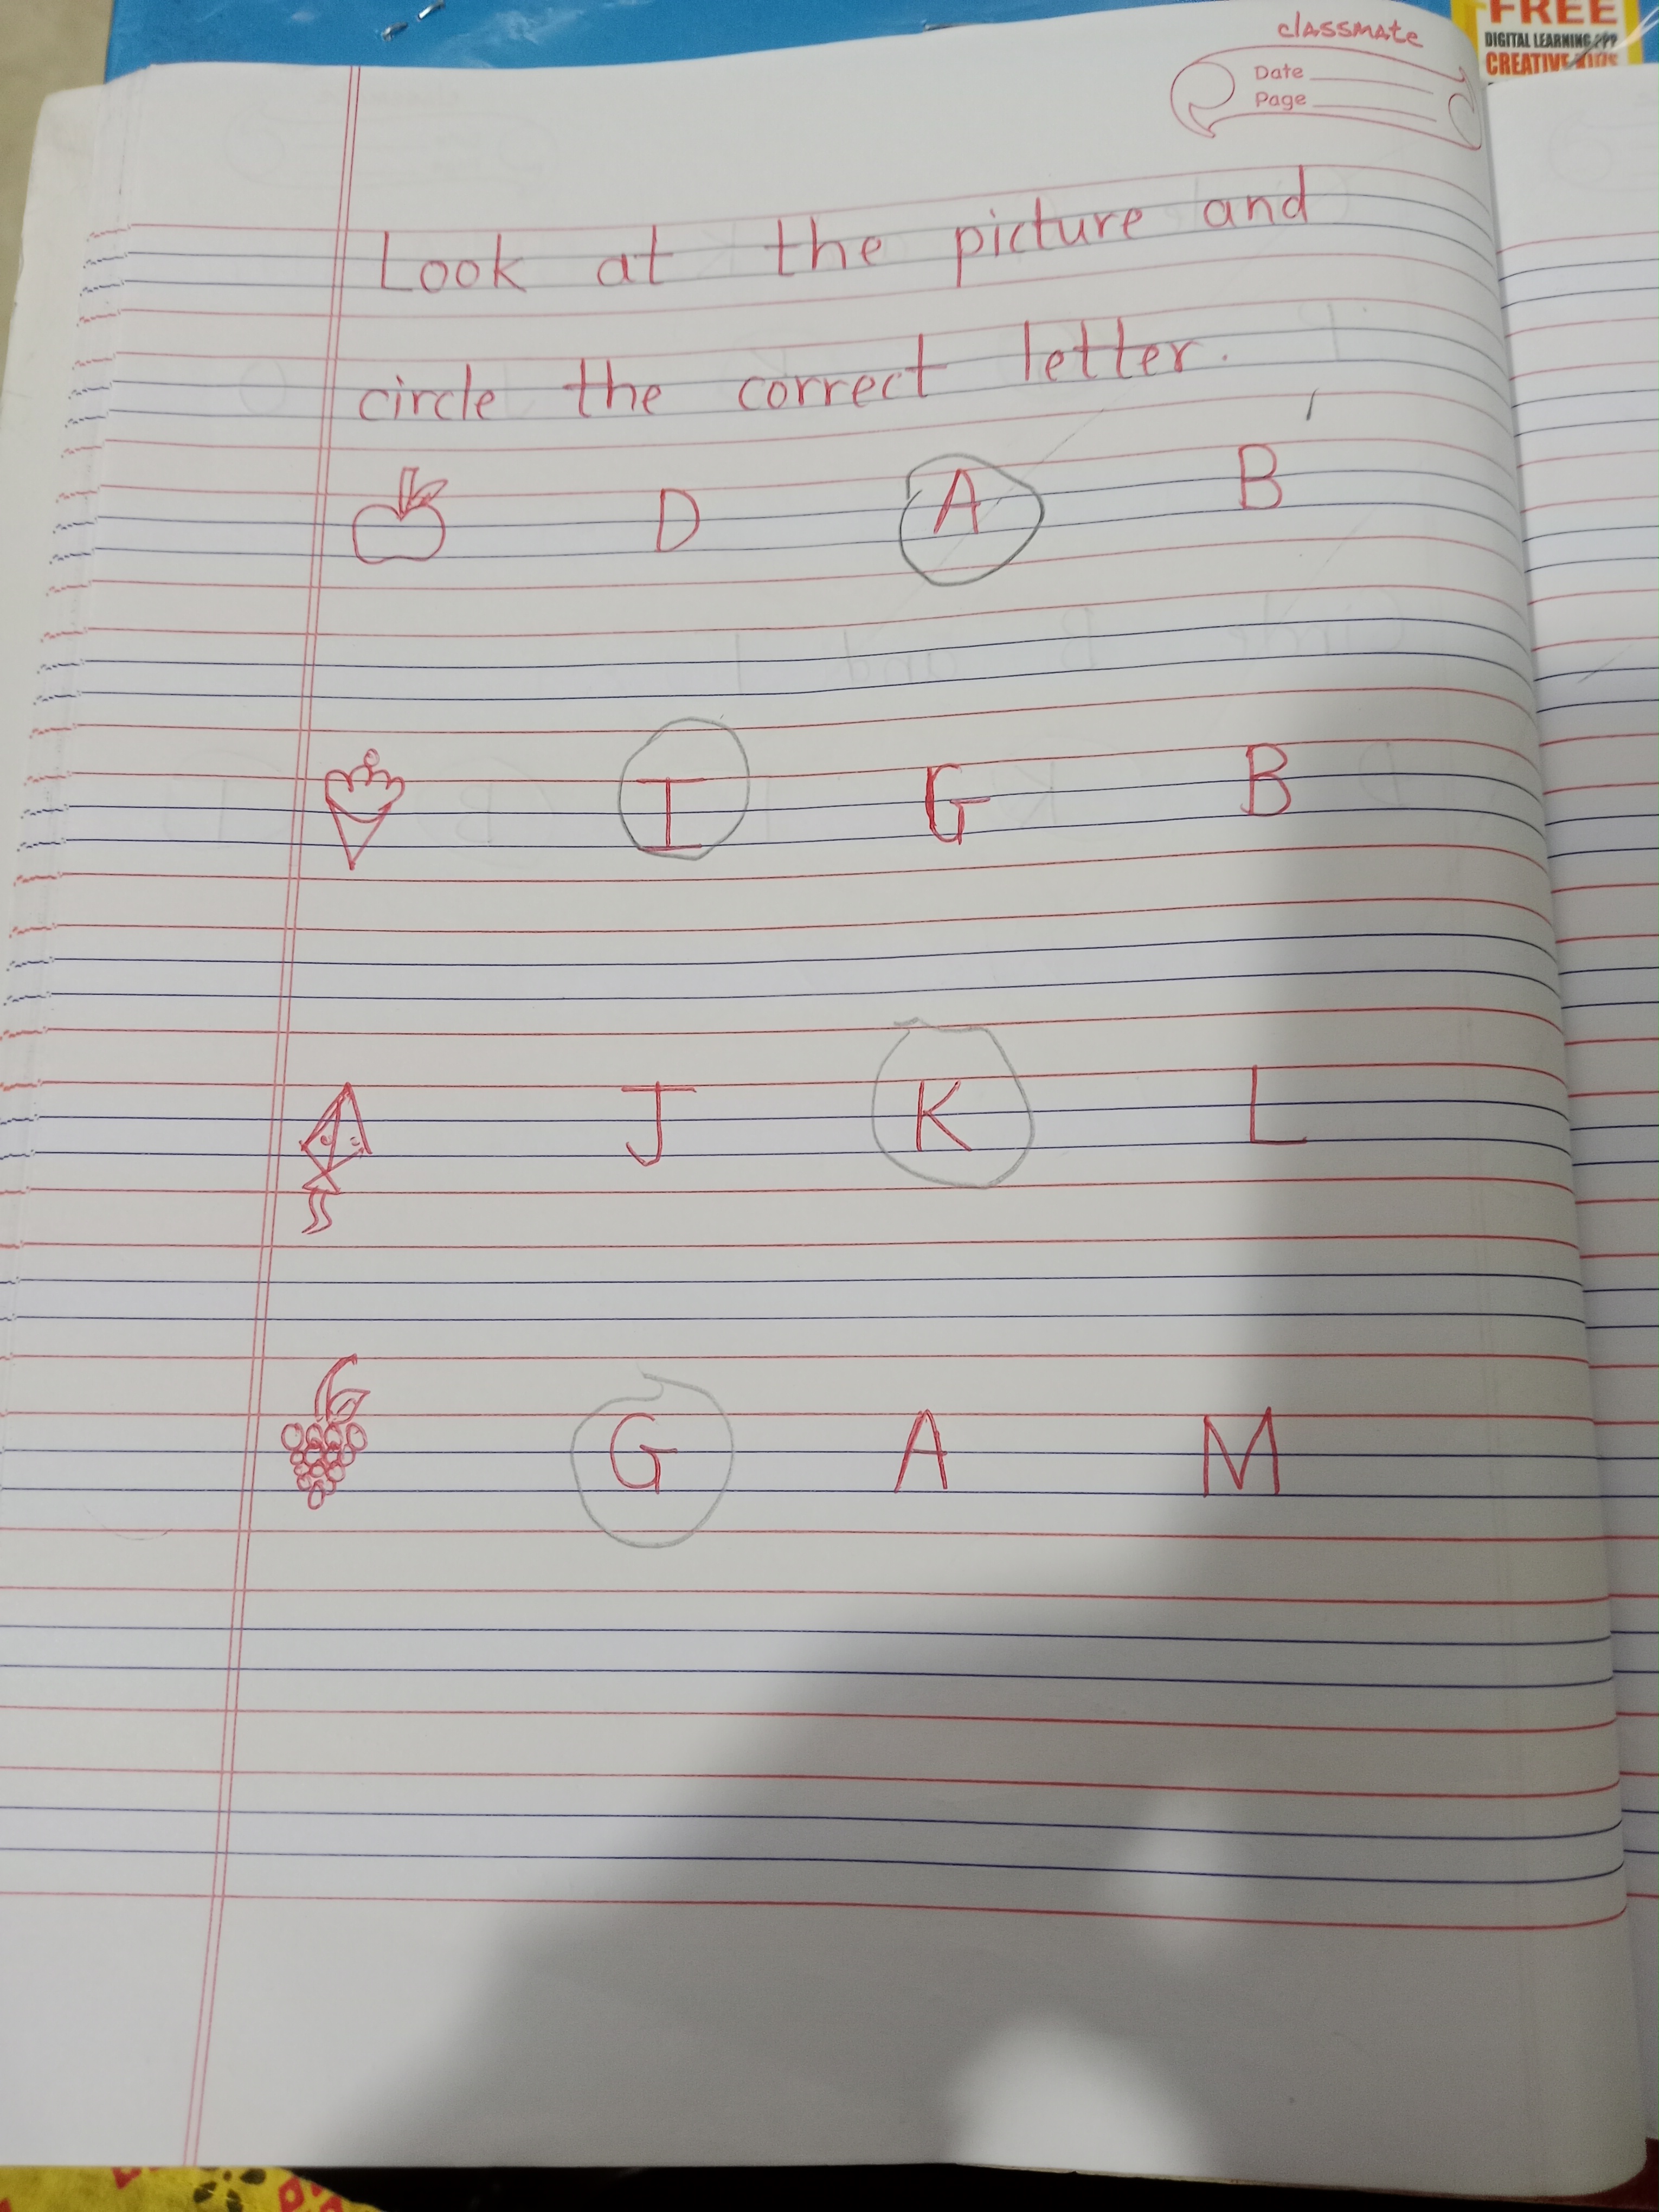 classmate
FREE
DIGITAL LEARNING APP
CREATIVE KIDS
Date
Page
Look at the picture and
circle the correct letter.
D A B
I G B
J K L
G A M